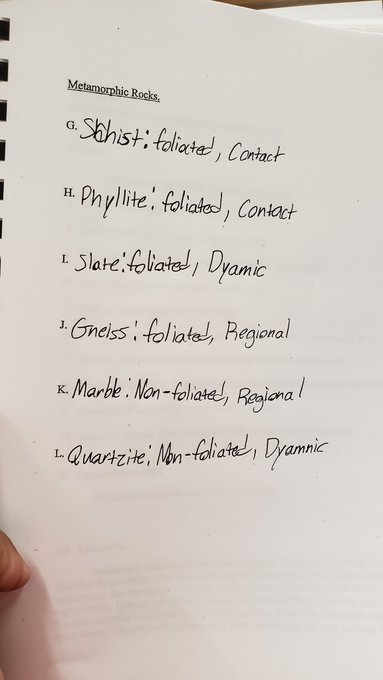 Metamorphic Rocks.
G. Shhist: foliated, Contact
H. Phyllite: foliated, Contact
I. Slate: foliated, Dyamic
J. Gneiss: foliated, Regional
K. Marble: Non-foliated, Regional
L. Quartzite: Non-foliated, Dyamnic